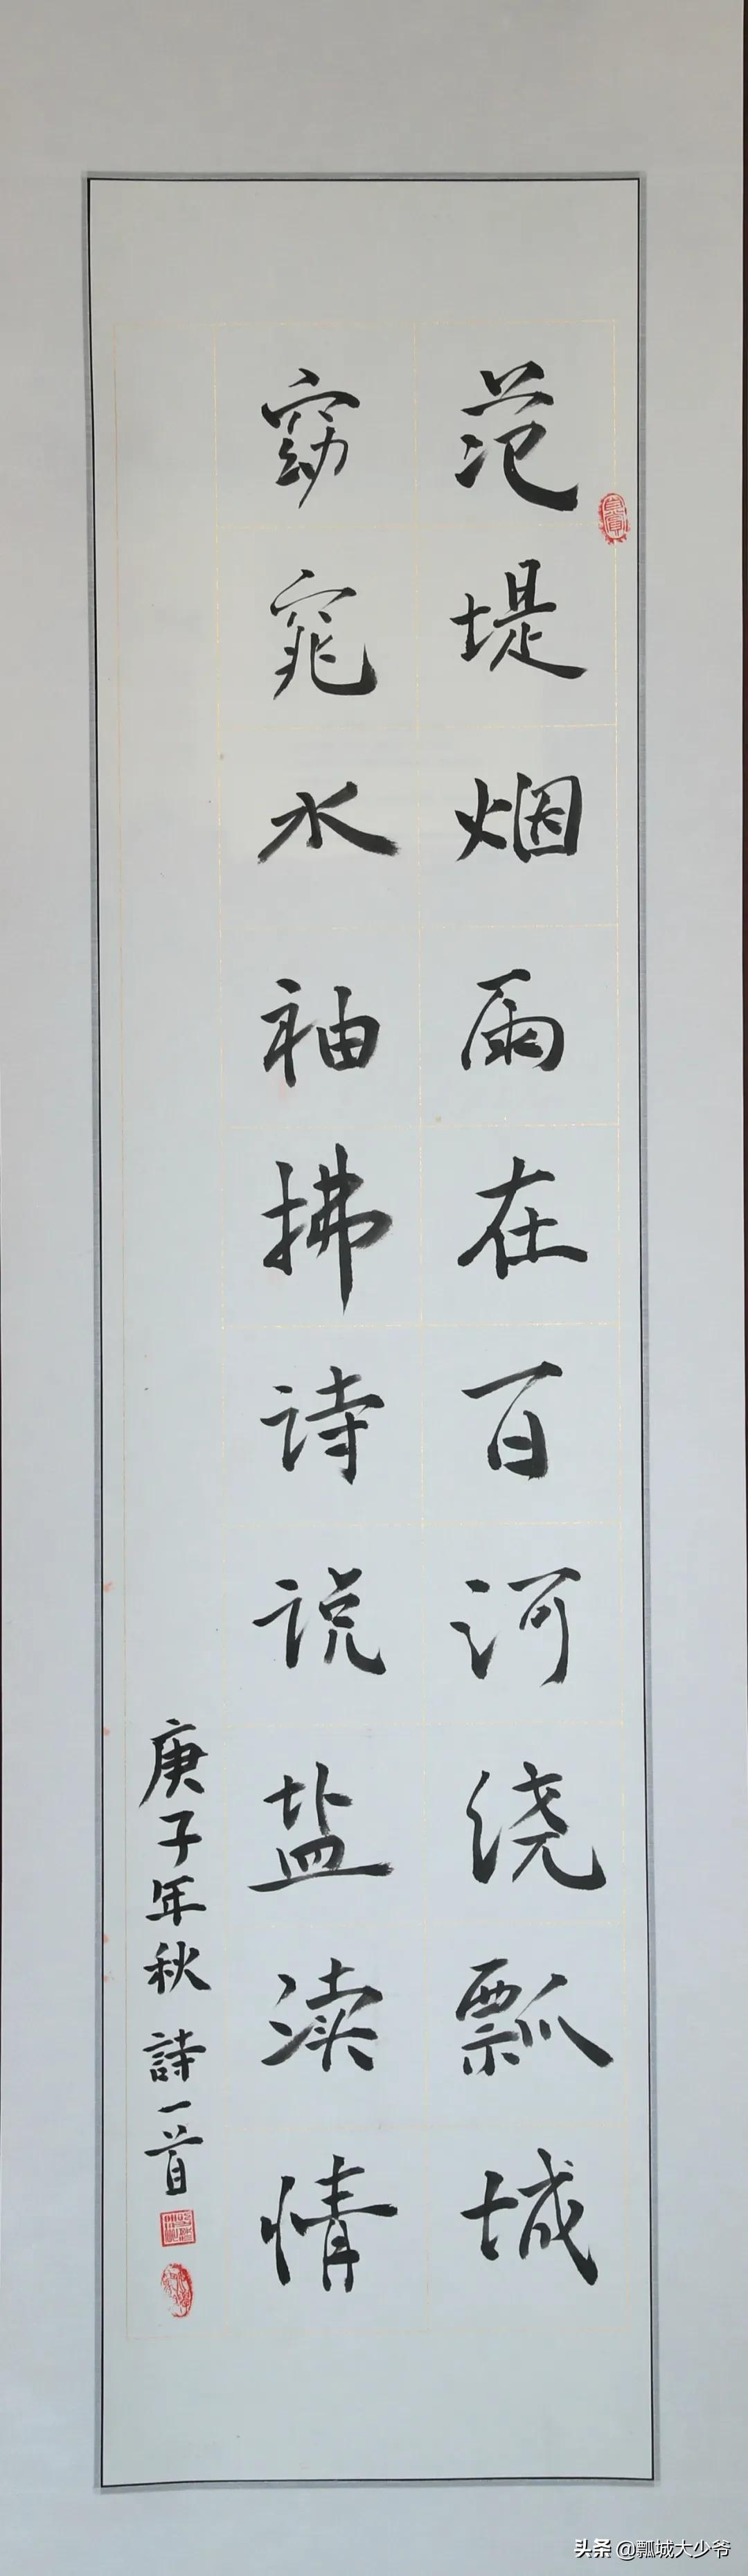 范堤烟雨在百河绕瓢城
窈窕水袖拂诗说盐渎情
庚子年秋 詩一首
头条 @瓢城大少爷